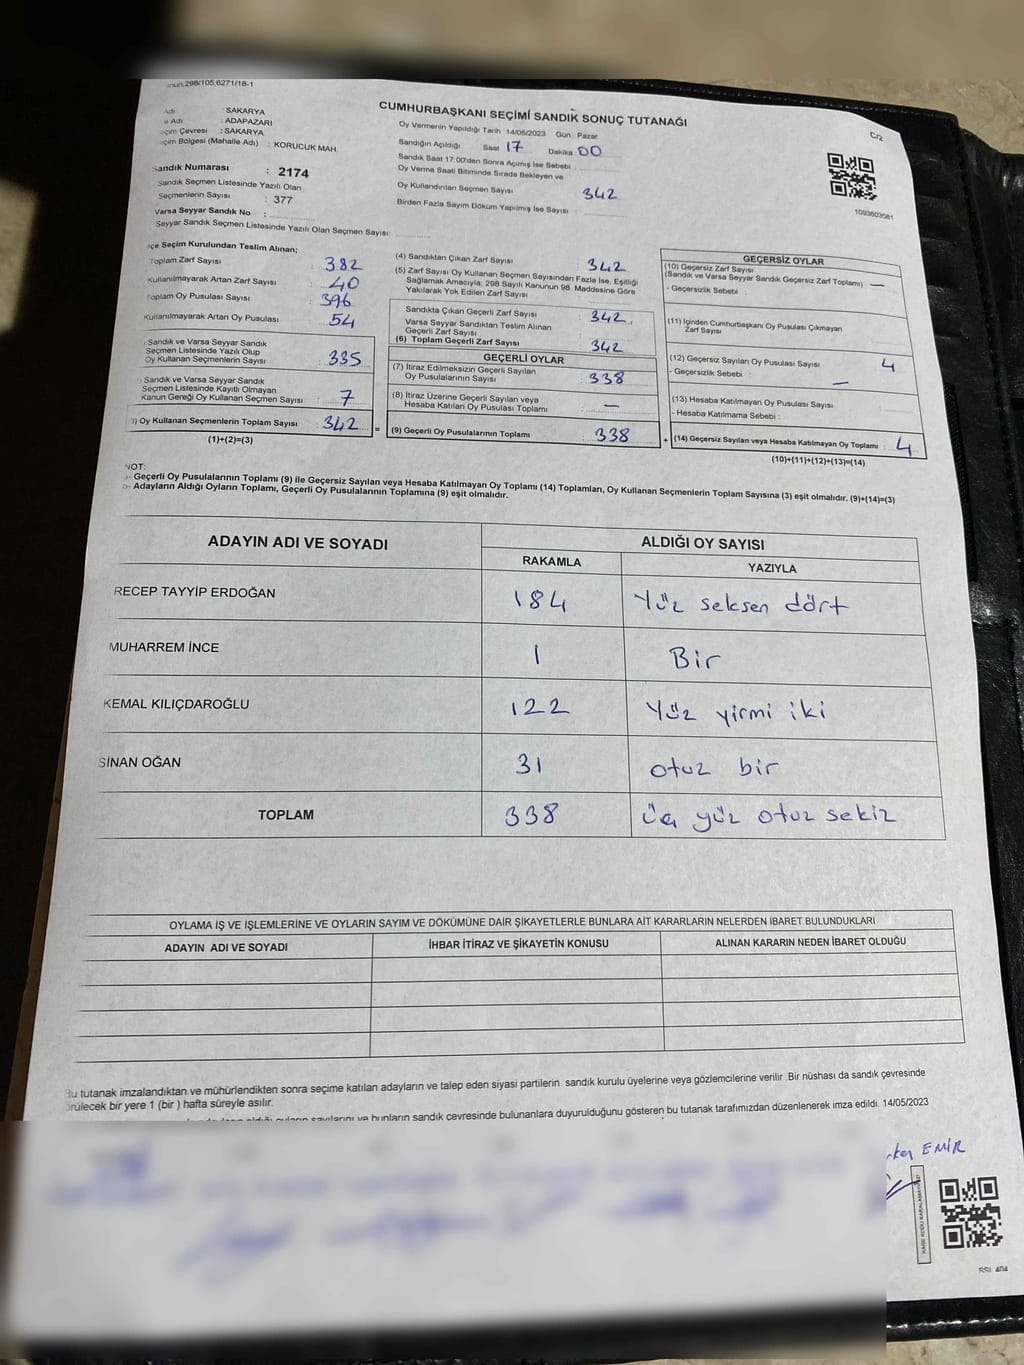 298/105,6271/18-1
CUMHURBAŞKANI SEÇİMİ SANDIK SONUÇ TUTANAĞI
C/2
: SAKARYA
Adı : ADAPAZARI
Çevresi : SAKARYA
Bölgesi (Mahalle Adı) : KORUCUK MAH.
Sandık Numarası : 2174
Sandık Seçmen Listesinde Yazılı Olan
Seçmenlerin Sayısı : 377
Varsa Seyyar Sandık No :
Seyyar Sandık Seçmen Listesinde Yazılı Olan Seçmen Sayısı:
Oy Vermenin Yapıldığı Tarih 14/05/2023 Gün : Pazar
Sandığın Açıldığı Saat 17 Dakika 00
Sandık Saat 17:00'den Sonra Açılmış İse Sebebi
Oy Verme Saati Bitiminde Sırada Bekleyen ve
Oy Kullandırılan Seçmen Sayısı 342
Birden Fazla Sayım Döküm Yapılmış İse Sayısı :
1093603581
Seçim Kurulundan Teslim Alınan;
Toplam Zarf Sayısı : 382
Kullanılmayarak Artan Zarf Sayısı : 40
Toplam Oy Pusulası Sayısı : 396
Kullanılmayarak Artan Oy Pusulası : 54
Sandık ve Varsa Seyyar Sandık
Seçmen Listesinde Yazılı Olup
Oy Kullanan Seçmenlerin Sayısı : 335
Sandık ve Varsa Seyyar Sandık
Seçmen Listesinde Kayıtlı Olmayan
Kanun Gereği Oy Kullanan Seçmen Sayısı : 7
) Oy Kullanan Seçmenlerin Toplam Sayısı : 342 =
(1)+(2)=(3)
(4) Sandıktan Çıkan Zarf Sayısı : 342
(5) Zarf Sayısı Oy Kullanan Seçmen Sayısından Fazla İse, Eşitliği
Sağlamak Amacıyla; 298 Sayılı Kanunun 98. Maddesine Göre
Yakılarak Yok Edilen Zarf Sayısı
Sandıkta Çıkan Geçerli Zarf Sayısı : 342
Varsa Seyyar Sandıktan Teslim Alınan
Geçerli Zarf Sayısı
(6) Toplam Geçerli Zarf Sayısı : 342
GEÇERLİ OYLAR
(7) İtiraz Edilmeksizin Geçerli Sayılan
Oy Pusulalarının Sayısı : 338
(8) İtiraz Üzerine Geçerli Sayılan veya
Hesaba Katılan Oy Pusulası Toplamı : —
(9) Geçerli Oy Pusulalarının Toplamı : 338 +
GEÇERSİZ OYLAR
(10) Geçersiz Zarf Sayısı
(Sandık ve Varsa Seyyar Sandık Geçersiz Zarf Toplamı) : —
- Geçersizlik Sebebi :
(11) İçinden Cumhurbaşkanı Oy Pusulası Çıkmayan
Zarf Sayısı
(12) Geçersiz Sayılan Oy Pusulası Sayısı : 4
- Geçersizlik Sebebi : —
(13) Hesaba Katılmayan Oy Pusulası Sayısı
- Hesaba Katılmama Sebebi :
(14) Geçersiz Sayılan veya Hesaba Katılmayan Oy Toplamı : 4
(10)+(11)+(12)+(13)=(14)
NOT:
- Geçerli Oy Pusulalarının Toplamı (9) ile Geçersiz Sayılan veya Hesaba Katılmayan Oy Toplamı (14) Toplamları, Oy Kullanan Seçmenlerin Toplam Sayısına (3) eşit olmalıdır. (9)+(14)=(3)
- Adayların Aldığı Oyların Toplamı, Geçerli Oy Pusulalarının Toplamına (9) eşit olmalıdır.
ADAYIN ADI VE SOYADI ALDIĞI OY SAYISI
RAKAMLA YAZIYLA
RECEP TAYYİP ERDOĞAN 184 Yüz seksen dört
MUHARREM İNCE 1 Bir
KEMAL KILIÇDAROĞLU 122 Yüz yirmi iki
SİNAN OĞAN 31 otuz bir
TOPLAM 338 üç yüz otuz sekiz
OYLAMA İŞ VE İŞLEMLERİNE VE OYLARIN SAYIM VE DÖKÜMÜNE DAİR ŞİKAYETLERLE BUNLARA AİT KARARLARIN NELERDEN İBARET BULUNDUKLARI
ADAYIN ADI VE SOYADI İHBAR İTİRAZ VE ŞİKAYETİN KONUSU ALINAN KARARIN NEDEN İBARET OLDUĞU
Bu tutanak imzalandıktan ve mühürlendikten sonra seçime katılan adayların ve talep eden siyasi partilerin sandık kurulu üyelerine veya gözlemcilerine verilir .Bir nüshası da sandık çevresinde
bir yere 1 (bir ) hafta süreyle asılır.
sayılarını ve bunların sandık çevresinde bulunanlara duyurulduğunu gösteren bu tutanak tarafımızdan düzenlenerek imza edildi. 14/05/2023
EMİR
KARE KODU KARALAMAYINIZ